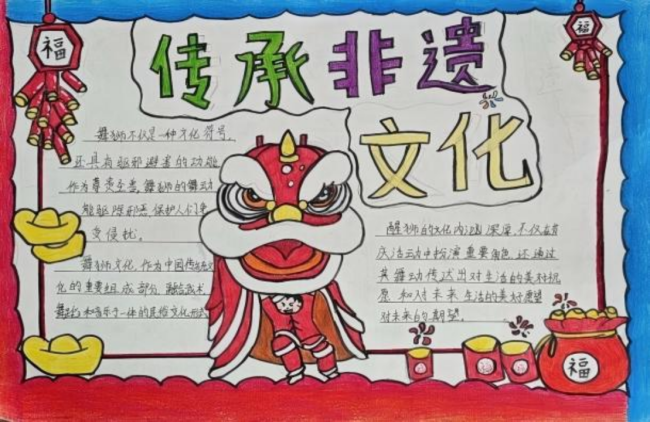 福
福
传承非遗
文化
舞狮不仅是一种文化符号,
还具有驱邪避害的功能
作为尊贵至善,舞狮的舞动
能驱除邪恶,保护人们
受侵扰。
舞狮文化,作为中国传统文
化的重要组成部分,融合武术
和音乐于一体的民俗文化形式
醒狮的文化内涵深厚,不仅在喜
庆活动中扮演重要角色,还通过
其舞动传达出对生活的美好祝
愿和对未来生活的美好愿望
对未来的期望。
福